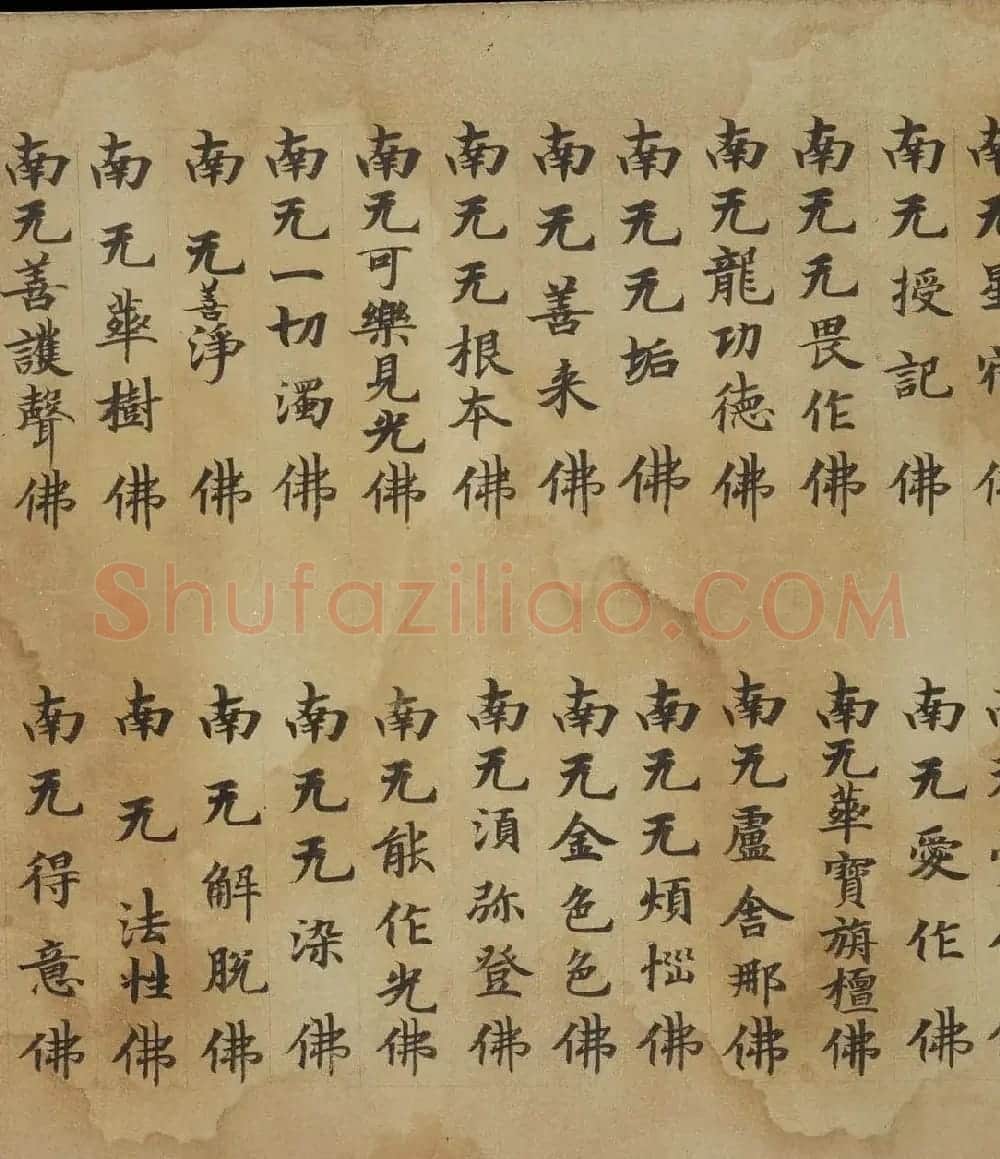 南无星宿佛
南无授記佛
南无无畏作佛
南无龍功德佛
南无无垢佛
南无善来佛
南无无根本佛
南无可樂見光佛
南无一切濁佛
南无善淨佛
南无華樹佛
南无善護聲佛
Shufaziliao.COM
南无愛作佛
南无華寶旃檀佛
南无盧舍那佛
南无无煩惱佛
南无金色色佛
南无湏弥登佛
南无能作光佛
南无无染佛
南无解脫佛
南无法性佛
南无得意佛